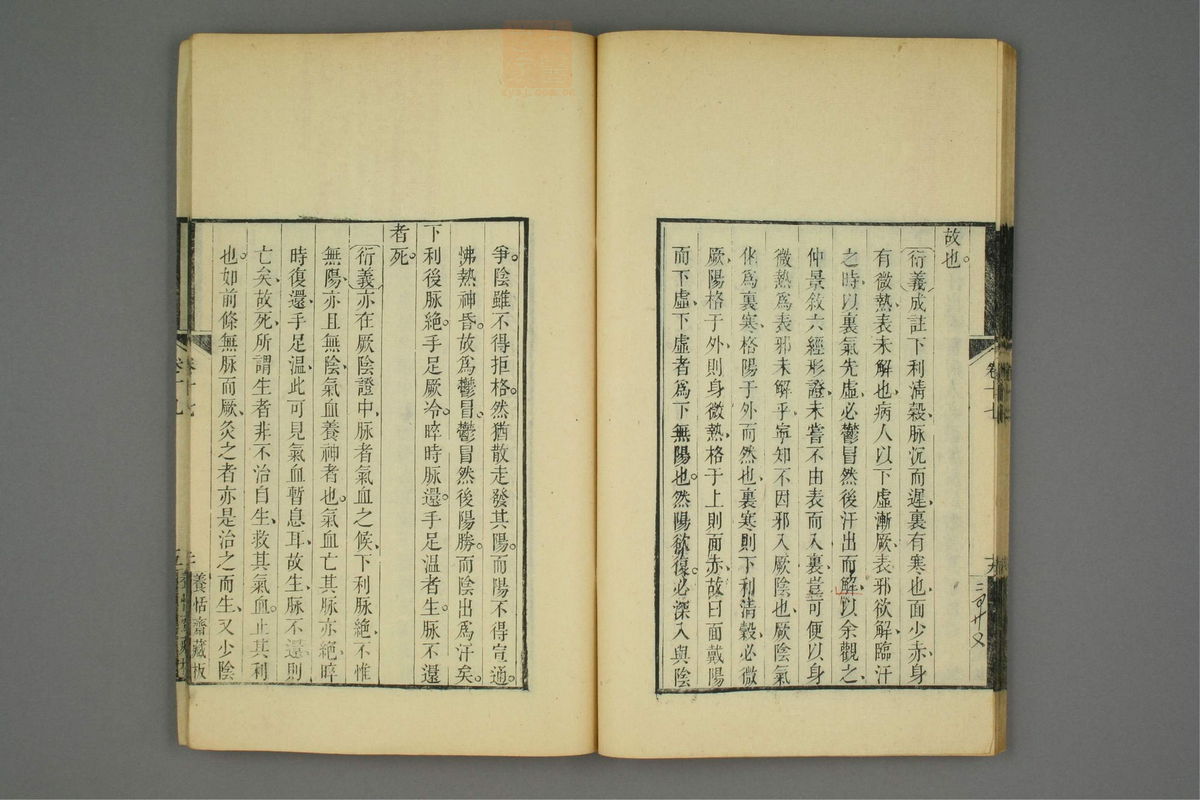 故也。
衍義成註下利清穀、脉沉而遲、裏有寒也、面少赤、身
有微熱、表未解也、病人以下虛漸厥、表邪欲解、臨汗
之時、以裏氣先虛、必鬱冒然後汗出而解、以余觀之、
仲景敘六經形證、未嘗不由表而入裏、豈可便以身
微熱爲表邪未解乎、寧知不因邪入厥陰也、厥陰氣
化爲裏寒、格陽于外而然也、裏寒則下利清穀、必微
厥、陽格于外、則身微熱、格于上則面赤、故曰面戴陽
而下虛、下虛者爲下無陽也。然陽欲復。必深入與陰
卷十七
爭。陰雖不得拒格。然猶散走發其陽。而陽不得宣通。
怫熱神昏。故爲鬱冒。鬱冒然後陽勝。而陰出爲汗矣。
下利後脉絶。手足厥冷。晬時脉還。手足温者生。脉不還
者死。
衍義亦在厥陰證中、脉者氣血之候、下利脉絶、不惟
無陽、亦且無陰、氣血養神者也。氣血亡其脉亦絶、晬
時復還、手足温、此可見氣血暫息耳、故生、脉不還則
亡矣、故死、所謂生者、非不治自生、救其氣血、止其利
也。如前條無脉而厥、灸之者、亦是治之而生、又少陰
卷十七
養恬齋藏板